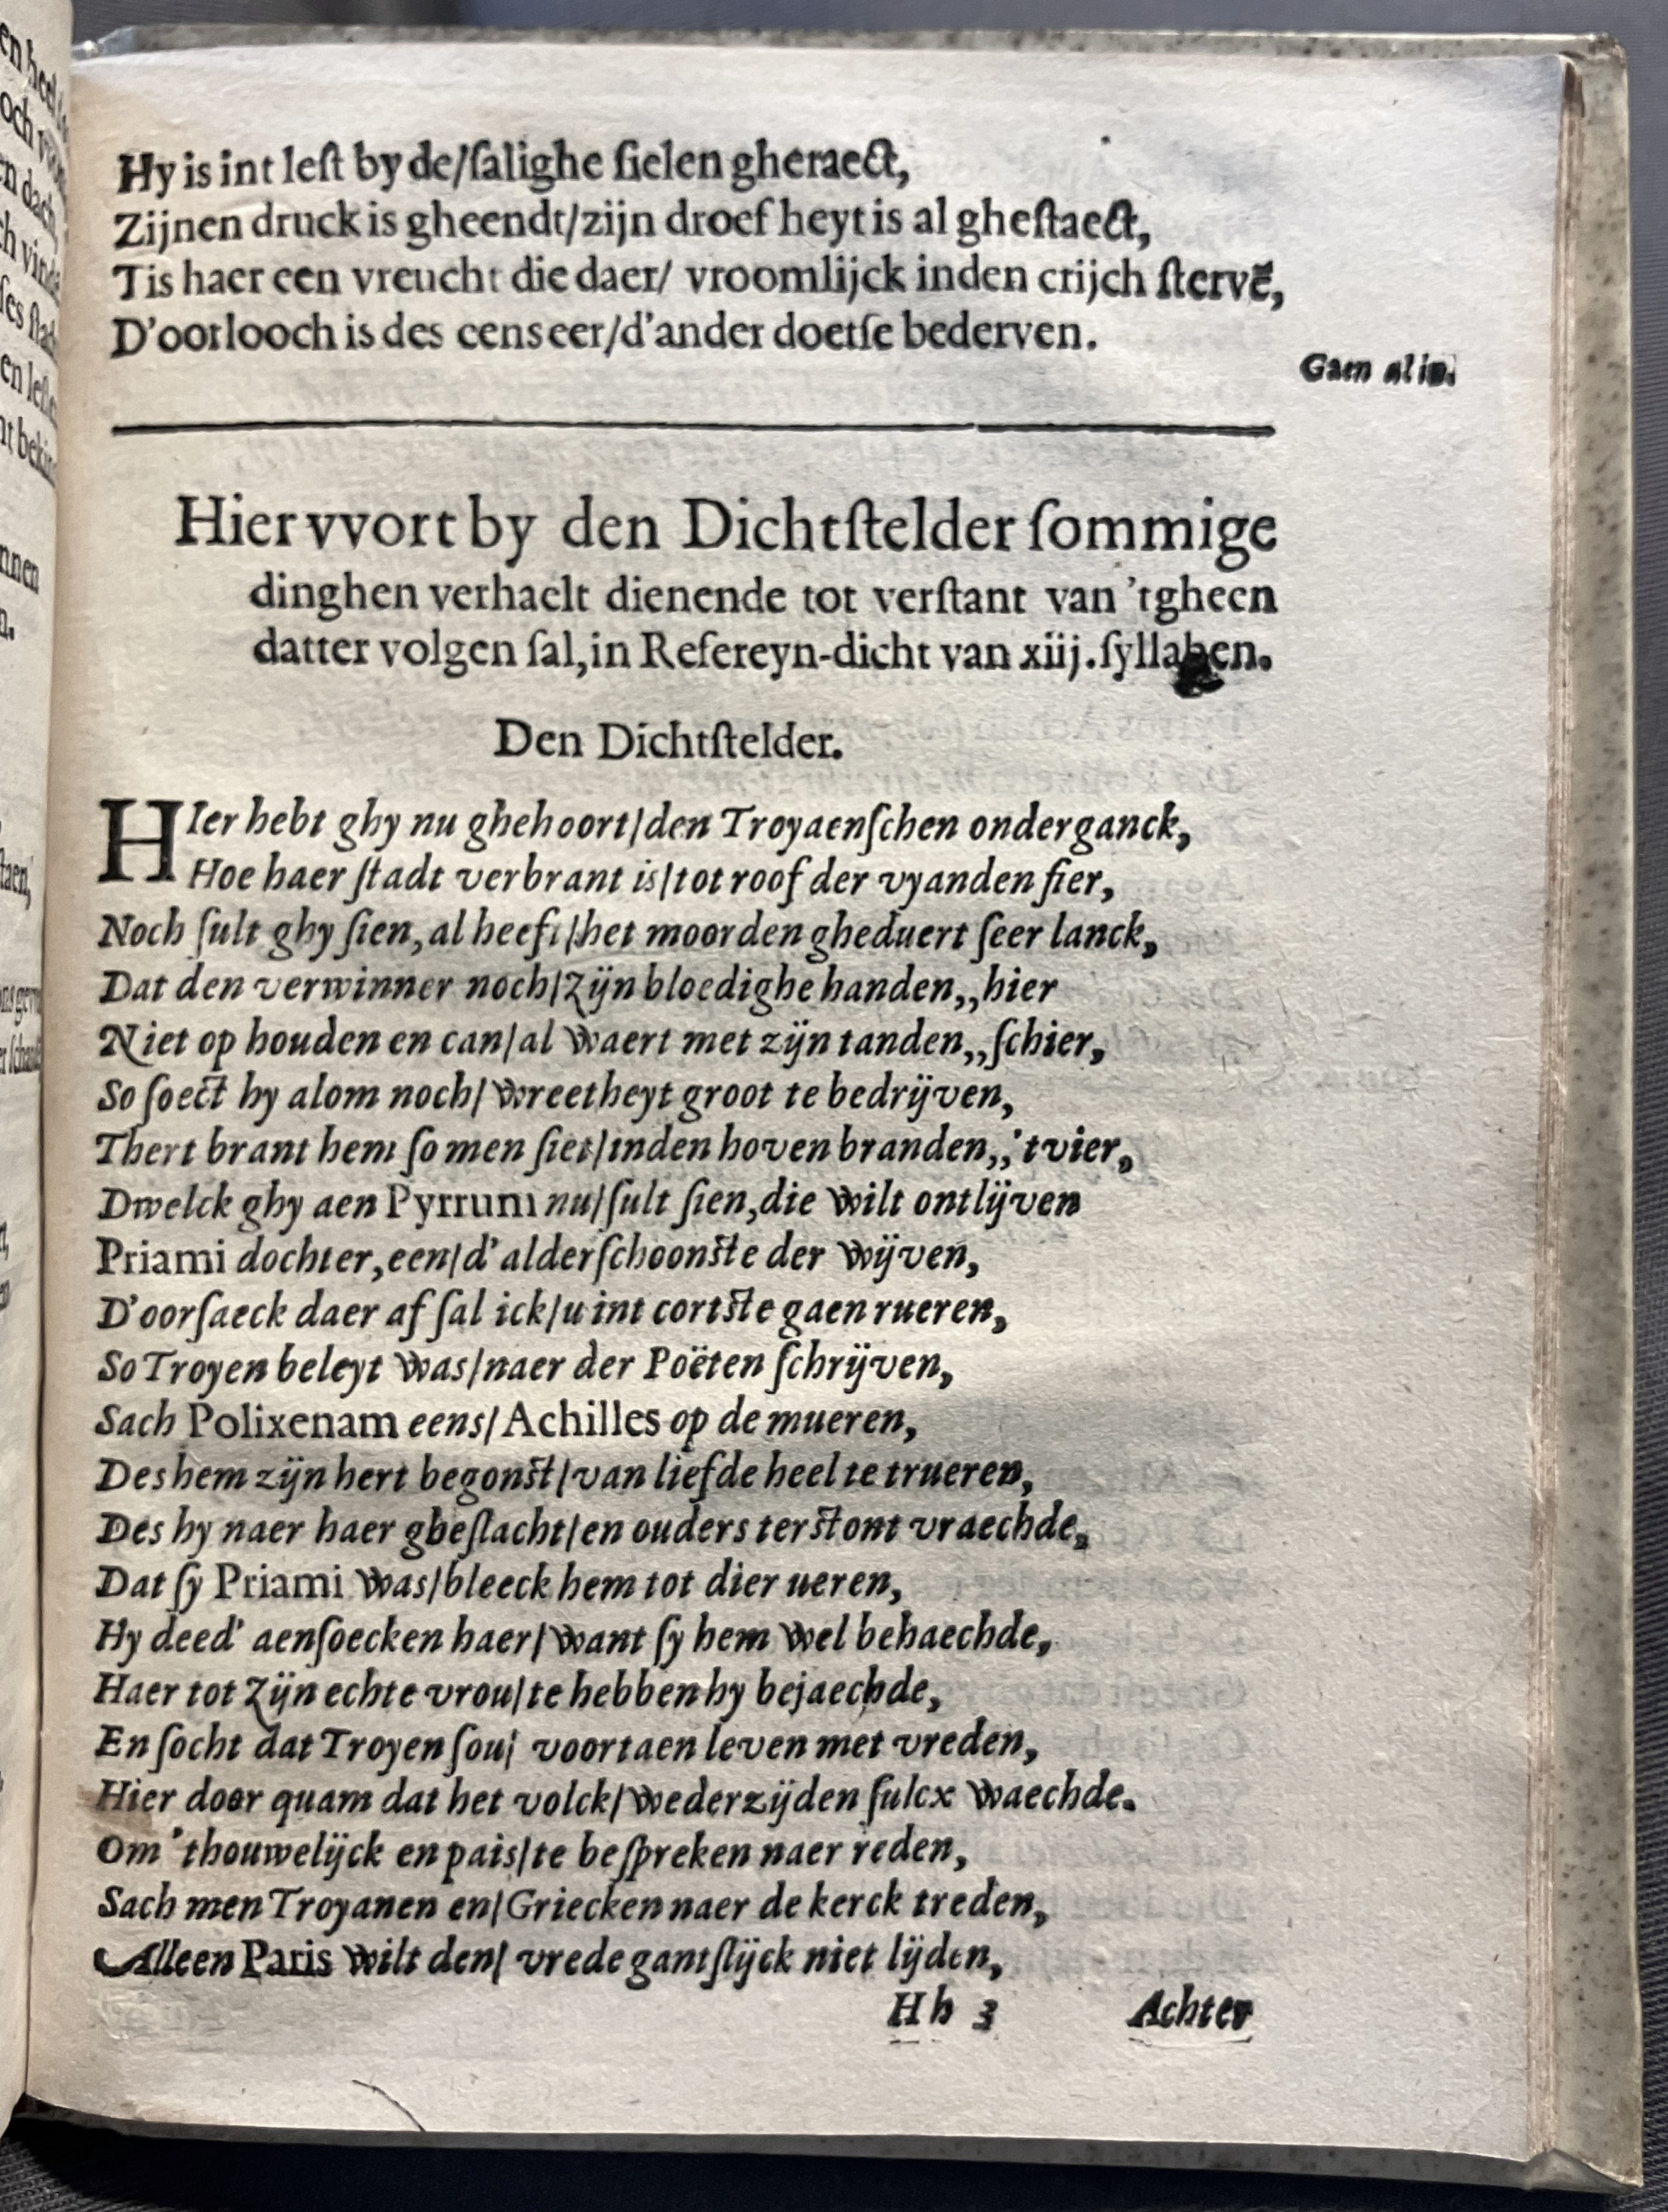 Hy is int leſt by de/ſalighe ſielen gheraect,
Zijnen druck is gheendt/zijn droefheyt is al gheſtaect,
Tis haer een vreucht die daer/ vroomlijck inden crijch ſtervē,
D'oorlooch is des eens eer/d'ander doetſe bederven.
Gaen al in.
Hier vvort by den Dichtſtelder ſommige
dinghen verhaelt dienende tot verſtant van 'tgheen
datter volgen ſal, in Refereyn-dicht van xiij. ſyllaben.
Den Dichtſtelder.
HIer hebt ghy nu ghehoort/den Troyaenſchen onderganck,
Hoe haer ſtadt verbrant is/tot roof der vyanden fier,
Noch ſult ghy ſien, al heeft/het moorden gheduert ſeer lanck,
Dat den verwinner noch/zijn bloedighe handen,,hier
Niet op houden en can/al waert met zijn tanden,,ſchier,
So ſoect hy alom noch/wreetheyt groot te bedrijven,
Thert brant hem ſo men ſiet/inden hoven branden,,'tvier,
Dwelck ghy aen Pyrrum nu/ſult ſien, die wilt ontlijven
Priami dochter, een/d'alderſchoonſte der wijven,
D'oorſaeck daer af ſal ick/u int cortſte gaen rueren,
So Troyen beleyt was/naer der Poëten ſchrijven,
Sach Polixenam eens/Achilles op de mueren,
Des hem zijn hert begonſt/van liefde heel te trueren,
Des hy naer haer gheſlacht/en ouders terſtont vraechde,
Dat ſy Priami was/bleeck hem tot dier ueren,
Hy deed' aenſoecken haer/want ſy hem wel behaechde,
Haer tot zijn echte vrou/te hebben hy bejaechde,
En ſocht dat Troyen ſou/ voortaen leven met vreden,
Hier door quam dat het volck/wederzijden ſulcx waechde.
Om 'thouwelijck en pais/te beſpreken naer reden,
Sach men Troyanen en/Griecken naer de kerck treden,
Alleen Paris wilt den/ vrede gantſlijck niet lijden,
Hh 3 Achter